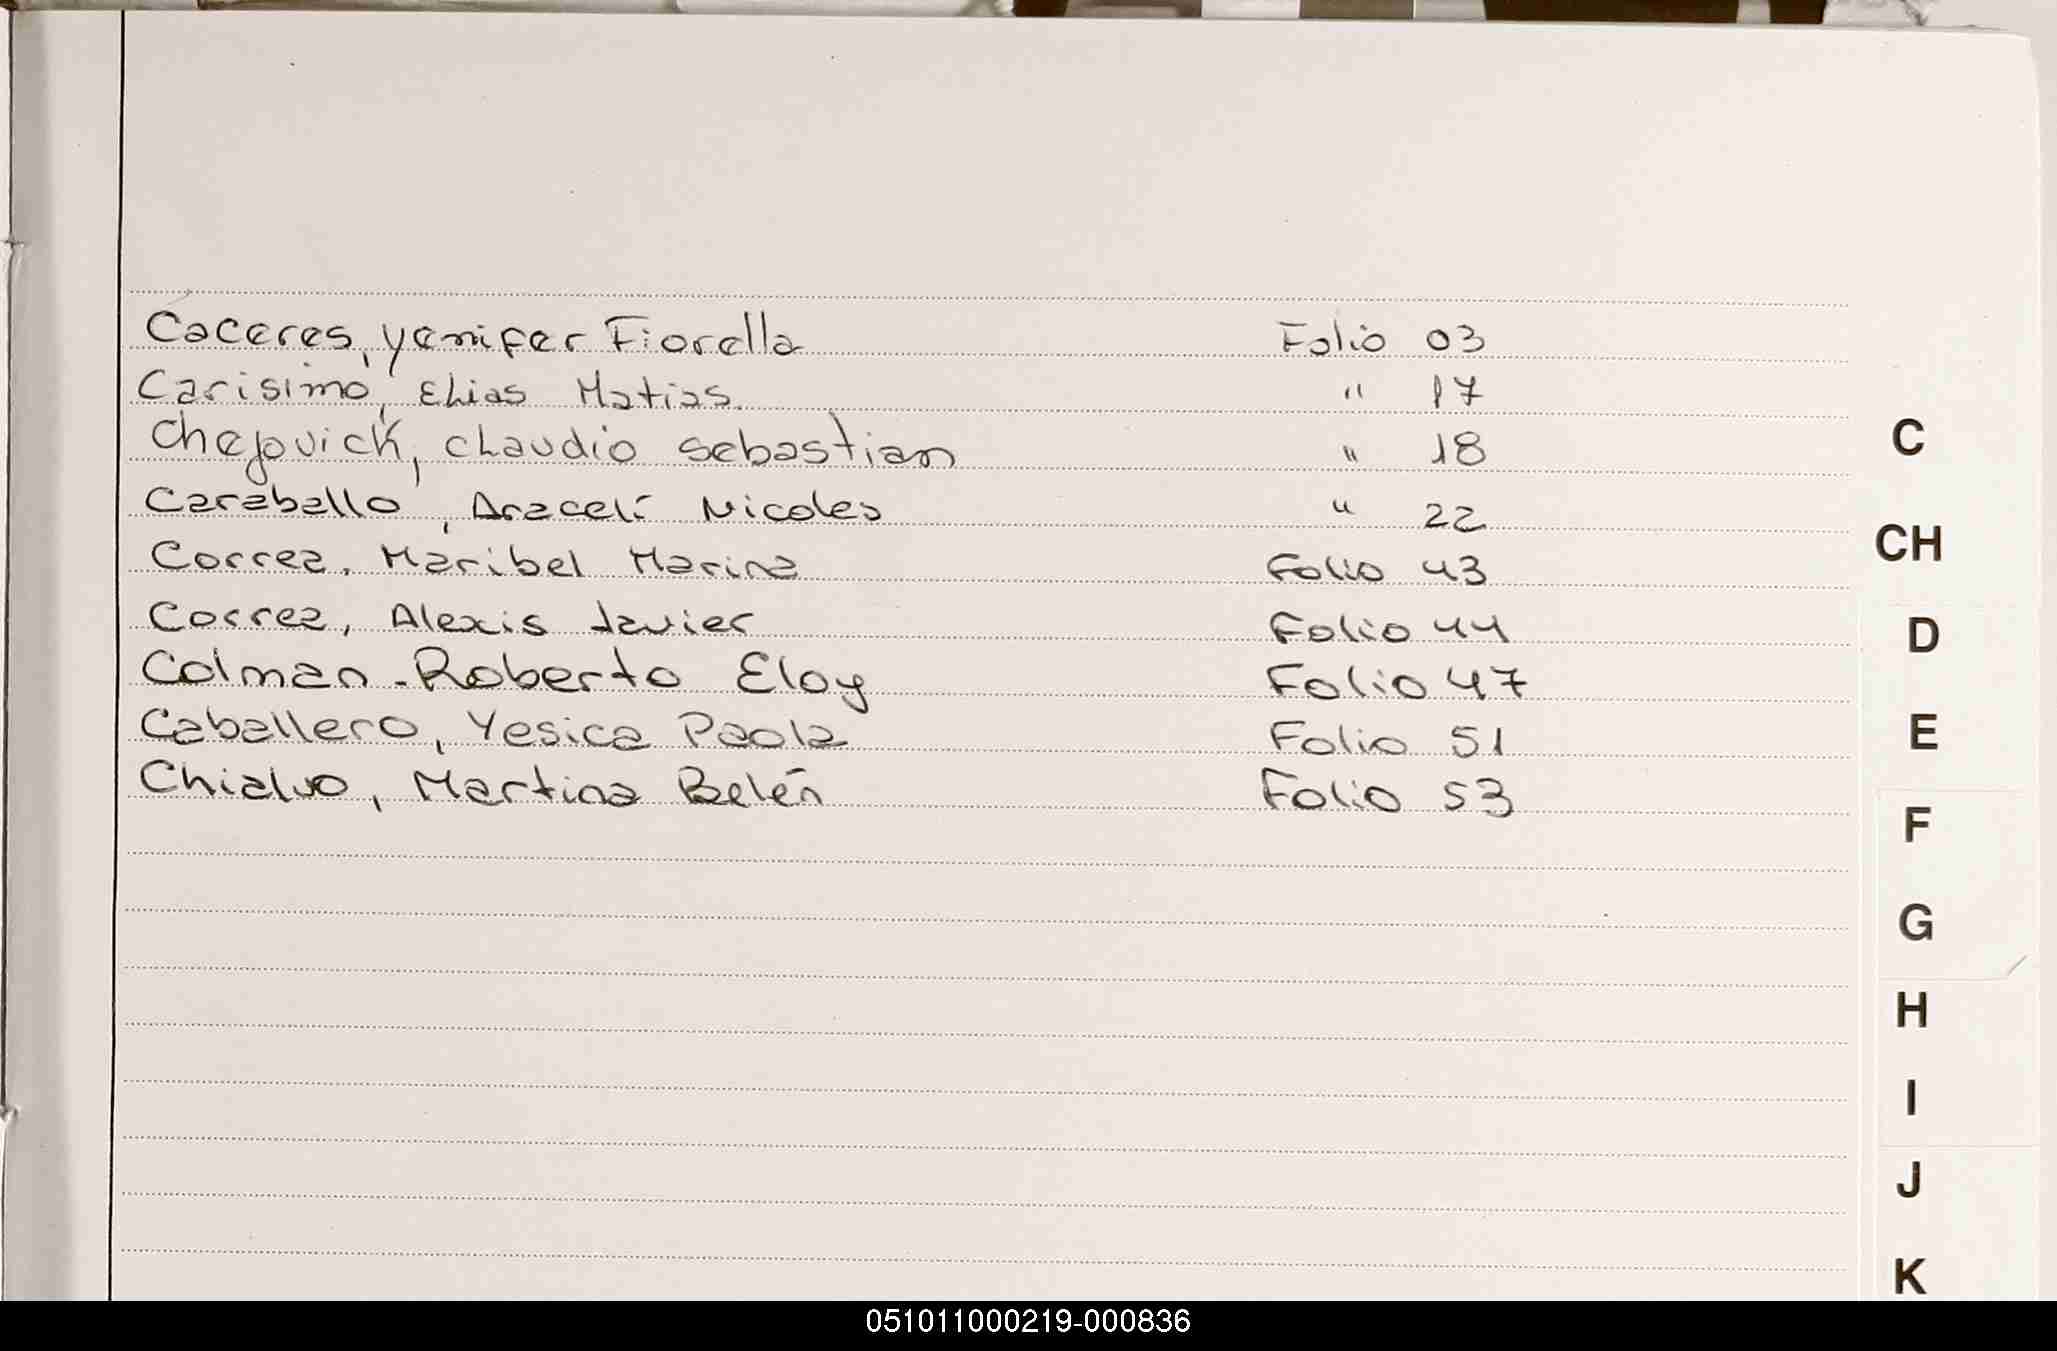 Caceres, Yenifer Fiorella Folio 03
Carisimo, Elias Matias. " 17
Chejovich, Claudio Sebastian " 18
Caraballo, Araceli Nicoles " 22
Correa, Maribel Marina Folio 43
Correa, Alexis Javier Folio 44
Colman - Roberto Eloy Folio 47
Caballero, Yesica Paola Folio 51
Chialvo, Martina Belén Folio 53
C
CH
D
E
F
G
H
I
J
K
051011000219-000836